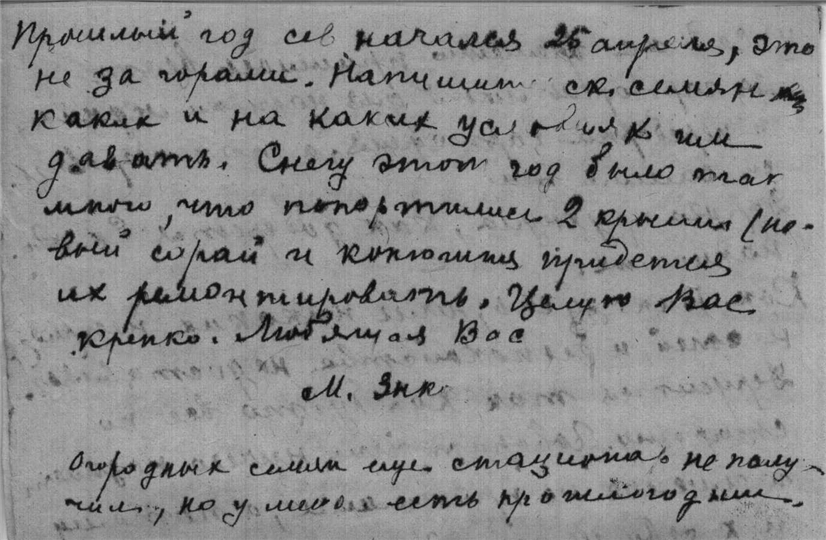 Прошлый год сев начался 25 апреля, это
не за горами. Напишите ск. семян
каких и на каких условиях им
давать. Снегу этот год было так
много, что попортились 2 крыши (но-
вый сарай и конюшня придется
их ремонтировать. Целую Вас
крепко. Любящая Вас
М.
Огородных семян еще стационар не полу-
чил, но у меня есть прошлогодние.